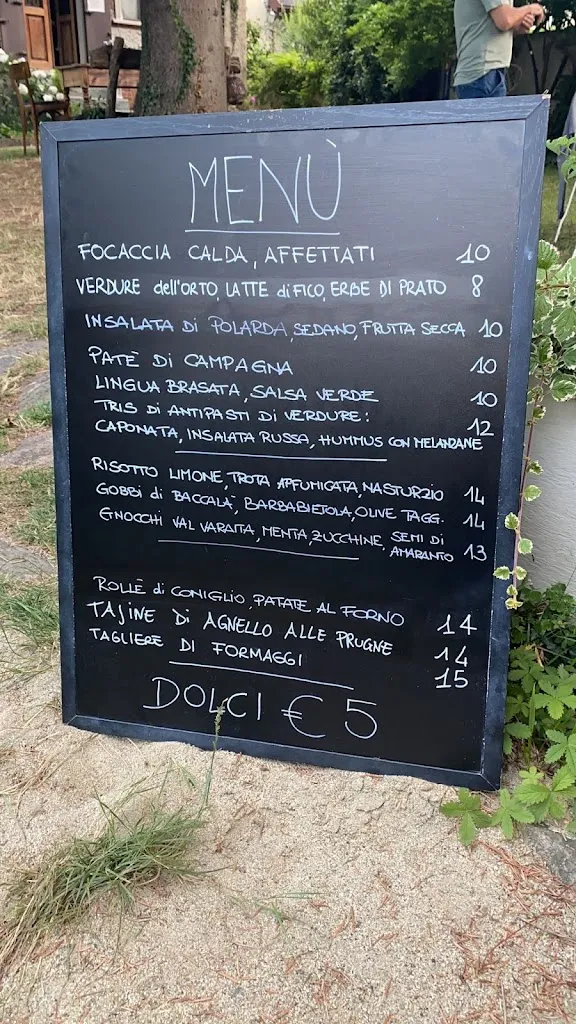 MENÙ
FOCACCIA CALDA, AFFETTATI 10
VERDURE dell'ORTO, LATTE di FICO, ERBE DI PRATO 8
INSALATA di POLARDA, SEDANO, FRUTTA SECCA 10
PATÈ Di CAMPAGNA 10
LINGUA BRASATA, SALSA VERDE 10
TRIS Di ANTIPASTI Di VERDURE: 12
CAPONATA, INSALATA RUSSA, HUMMUS CON MELANZANE
RISOTTO LIMONE, TROTA AFFUMICATA, NASTURZIO 14
GOBBI di BACCALÀ, BARBABIETOLA, OLIVE TAGG. 14
GNOCCHI VAL VARAITA, MENTA, ZUCCHINE, SEMI DI
AMARANTO 13
ROLLÈ di CONIGLIO, PATATE AL FORNO 14
TAJINE Di AGNELLO ALLE PRUGNE 14
TAGLIERE DI FORMAGGI 15
DOLCI € 5